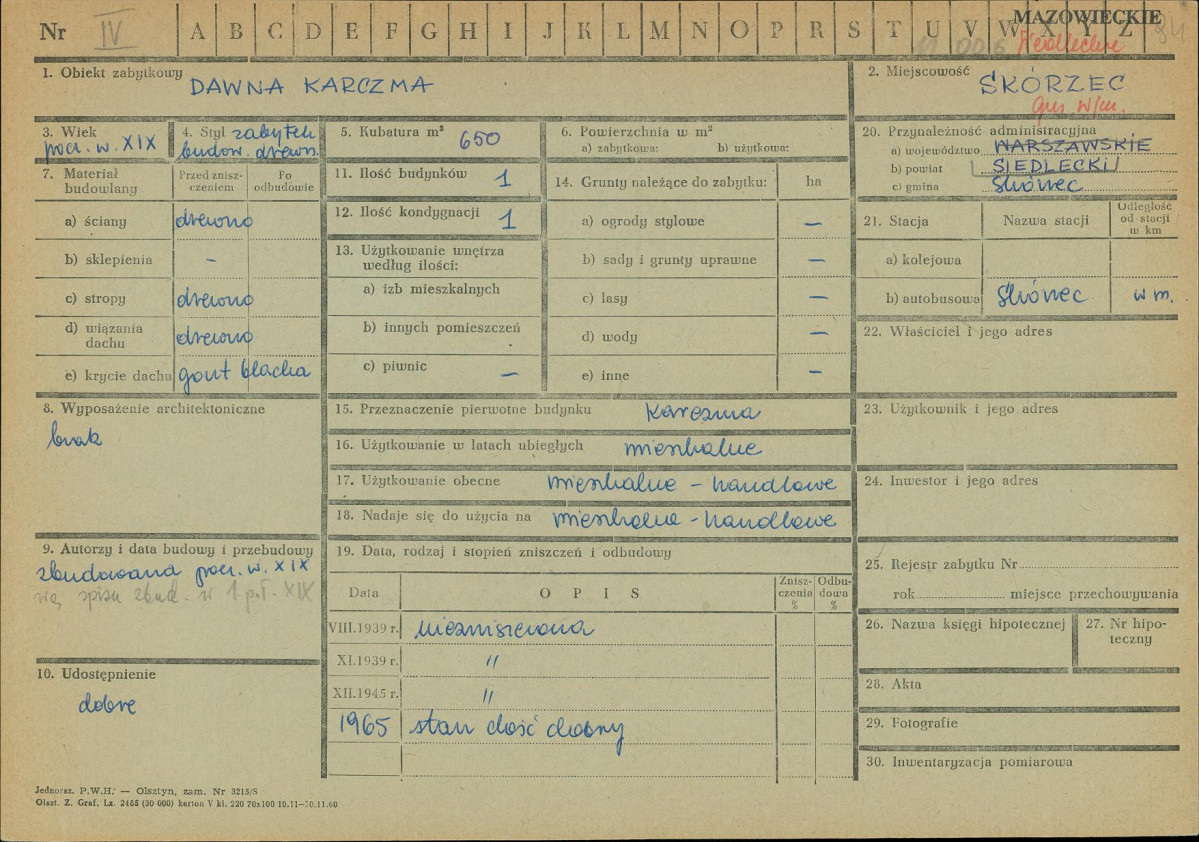 Nr IV A B C D E F G H I J K L M N O P R S T U V W X Y Z
MAZOWIECKIE
Siedleckie
1. Obiekt zabytkowy
DAWNA KARCZMA
2. Miejscowość
SKÓRZEC
gm. w/m.
3. Wiek
pocz. w. XIX
4. Styl zabytek
budow. drewn.
5. Kubatura m³ 650
6. Powierzchnia w m²
a) zabytkowa: b) użytkowa:
7. Materiał
budowlany
Przed znisz-
czeniem
Po
odbudowie
a) ściany drewno
b) sklepienia –
c) stropy drewno
d) wiązania
dachu drewno
e) krycie dachu gont blacha
8. Wyposażenie architektoniczne
brak
9. Autorzy i data budowy i przebudowy
zbudowana pocz. w. XIX
wg spisu zbud. w 1 poł. XIX
10. Udostępnienie
dobre
11. Ilość budynków 1
12. Ilość kondygnacji 1
13. Użytkowanie wnętrza
według ilości:
a) izb mieszkalnych
b) innych pomieszczeń
c) piwnic –
14. Grunty należące do zabytku: ha
a) ogrody stylowe –
b) sady i grunty uprawne –
c) lasy –
d) wody –
e) inne –
15. Przeznaczenie pierwotne budynku karczma
16. Użytkowanie w latach ubiegłych mieszkalne
17. Użytkowanie obecne mieszkalne – handlowe
18. Nadaje się do użycia na mieszkalne – handlowe
19. Data, rodzaj i stopień zniszczeń i odbudowy
Data OPIS Znisz-
czenia
% Odbu-
dowa
%
VIII.1939 r. niezniszczona
XI.1939 r. "
XII.1945 r. "
1965 stan dość dobry
20. Przynależność administracyjna
a) województwo WARSZAWSKIE
b) powiat SIEDLECKI
c) gmina Skórzec
21. Stacja Nazwa stacji Odległość
od stacji
w km
a) kolejowa
b) autobusowa Skórzec w m.
22. Właściciel i jego adres
23. Użytkownik i jego adres
24. Inwestor i jego adres
25. Rejestr zabytku Nr
rok miejsce przechowywania
26. Nazwa księgi hipotecznej
27. Nr hipo-
teczny
28. Akta
29. Fotografie
30. Inwentaryzacja pomiarowa
Jednoraz. P.W.H. — Olsztyn, zam. Nr 3215/S
Olszt. Z. Graf. Lz. 2465 (30 000) karton V kl. 220 70x100 10.11—30.11.60